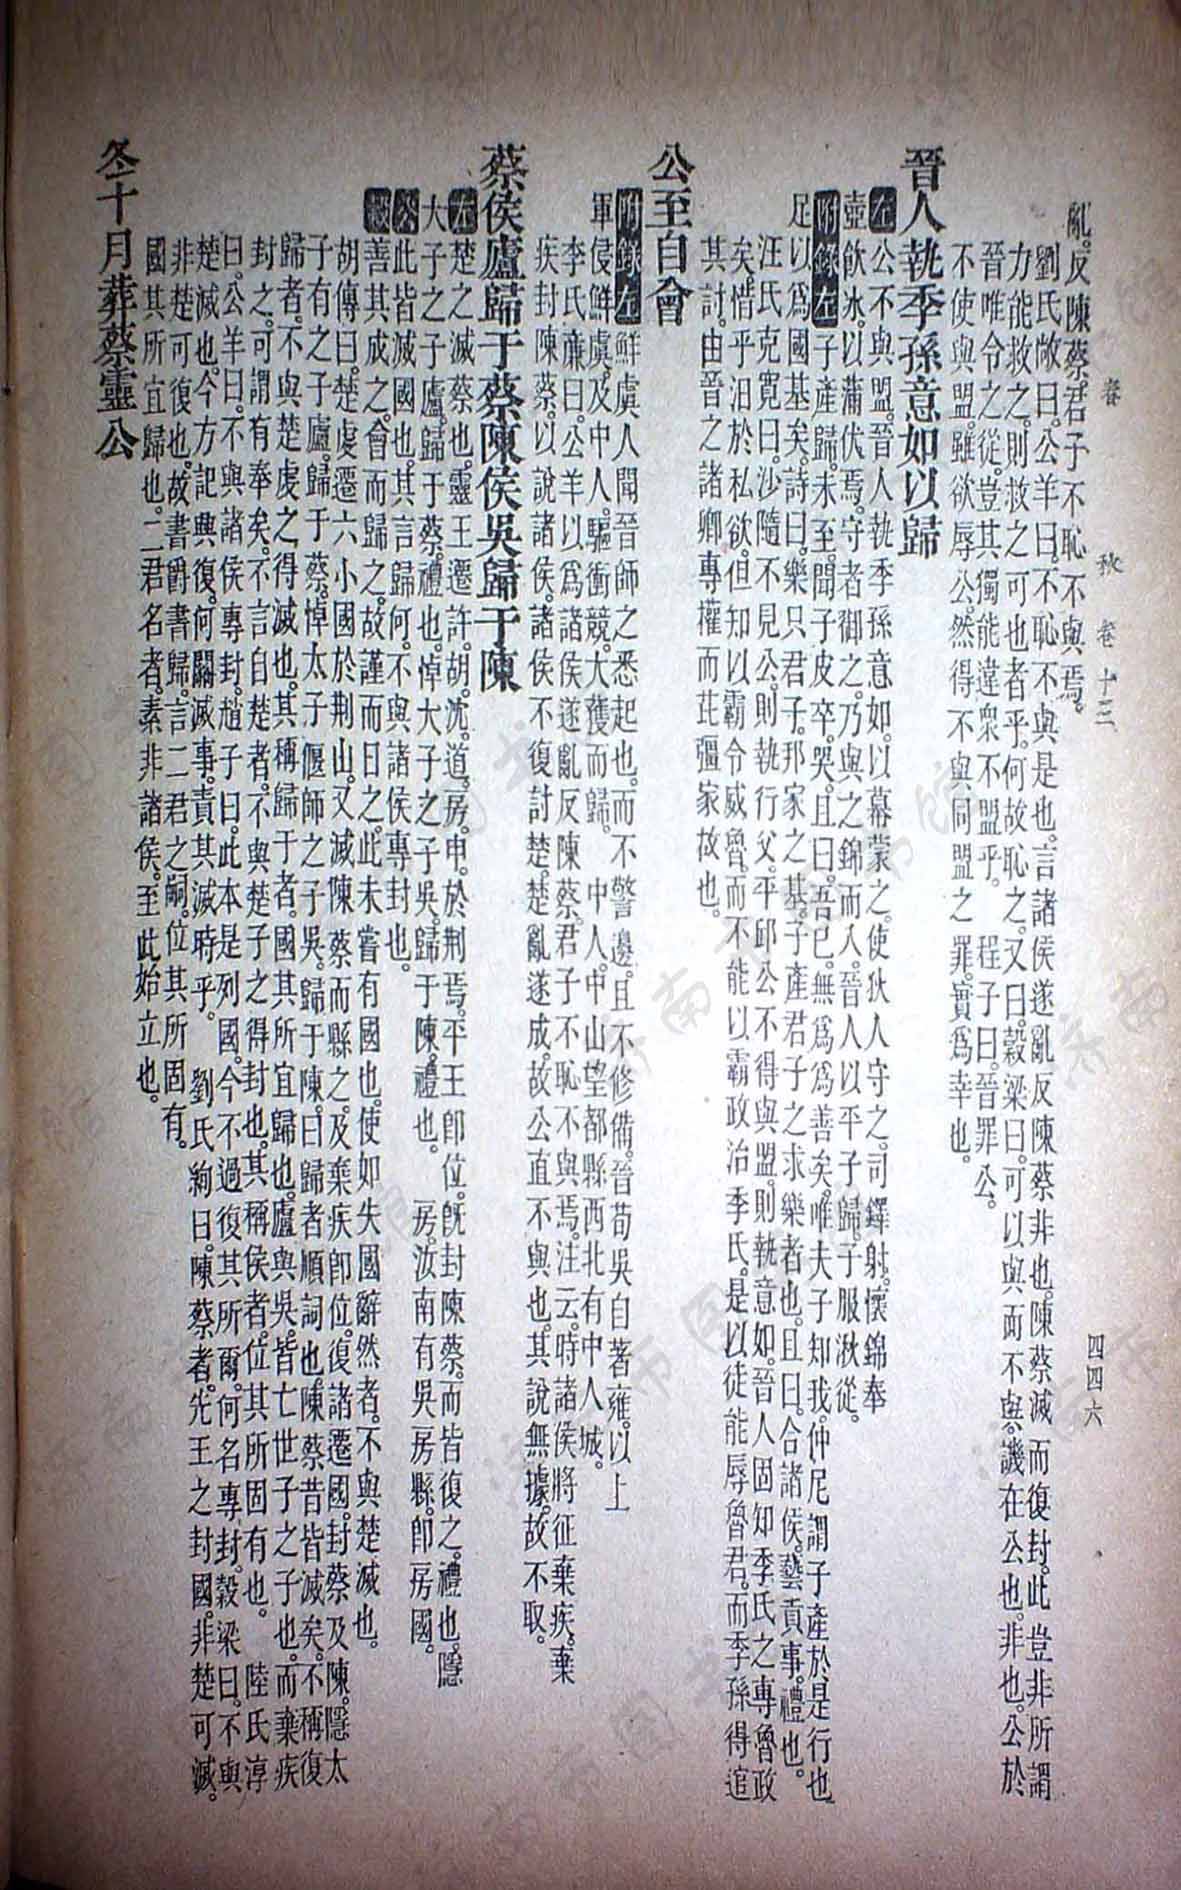 春　秋　卷十三　四四六
亂反陳蔡君子不恥不與焉。
劉氏敞曰。公羊曰。不恥不與是也。言諸侯遂亂反陳蔡非也。陳蔡滅而復封。此豈非所謂
力能救之。則救之可也者乎。何故恥之。又曰。穀梁曰。可以與而不與。譏在公也。非也。公於
晉唯令之從。豈其獨能違眾不盟乎。　程子曰。晉罪公。
不使與盟。雖欲辱公。然得不與同盟之罪。實爲幸也。
晉人執季孫意如以歸
左公不與盟。晉人執季孫意如。以幕蒙之。使狄人守之。司鐸射。懷錦奉
壺飲冰。以蒲伏焉。守者御之。乃與之錦而入。晉人以平子歸。子服湫從。
附錄左子產歸。未至。聞子皮卒。哭。且曰。吾已。無爲爲善矣。唯夫子知我。仲尼謂子產於是行也
足以爲國基矣。詩曰。樂只君子。邦家之基。子產君子之求樂者也。且曰。合諸侯。藝貢事。禮也。
汪氏克寬曰。沙隨不見公。則執行父。平邱公不得與盟。則執意如。晉人固知季氏之專魯政
矣。惜乎汨於私欲。但知以霸令威魯。而不能以霸政治季氏。是以徒能辱魯君。而季孫得逭
其討。由晉之諸卿專權而芘彊家故也。
公至自會
附錄左鮮虞人聞晉師之悉起也。而不警邊。且不修備。晉荀吳自著雍。以上
軍侵鮮虞。及中人。驅衝競。大獲而歸。　中人。中山望都縣西北有中人城。
李氏廉曰。公羊以爲諸侯遂亂反陳蔡。君子不恥不與焉。注云。時諸侯將征棄疾。棄
疾封陳蔡。以說諸侯。諸侯不復討楚。楚亂遂成。故公直不與也。其說無據。故不取。
蔡侯廬歸于蔡陳侯吳歸于陳
左楚之滅蔡也。靈王遷許。胡。沈。道。房。申。於荆焉。平王卽位。旣封陳蔡。而皆復之。禮也。隱
大子之子廬。歸于蔡。禮也。悼大子之子吳。歸于陳。禮也。　房。汝南有吳房縣。卽房國。
公此皆滅國也。其言歸何。不與諸侯專封也。
穀善其成之。會而歸之。故謹而日之。此未嘗有國也。使如失國辭然者。不與楚滅也。
胡傳曰。楚虔遷六小國於荆山。又滅陳蔡而縣之。及棄疾卽位。復諸遷國。封蔡及陳。隱太
子有之子廬。歸于蔡。悼太子偃師之子吳。歸于陳。曰歸者順詞也。陳蔡昔皆滅矣。不稱復
歸者。不與楚虔之得滅也。其稱歸于者。國其所宜歸也。廬與吳。皆亡世子之子也。而棄疾
封之。可謂有奉矣。不言自楚者。不與楚子之得封也。其稱侯者。位其所固有也。　陸氏淳
曰。公羊曰。不與諸侯專封。趙子曰。此本是列國。今不過復其所爾。何名專封。穀梁曰。不與
楚滅也。今方記典復。何關滅事。責其滅時乎。　劉氏絢曰。陳蔡者。先王之封國。非楚可滅。
非楚可復也。故書爵書歸。言二君之嗣。位其所固有。
國其所宜歸也。二君名者。素非諸侯。至此始立也。
冬十月葬蔡靈公